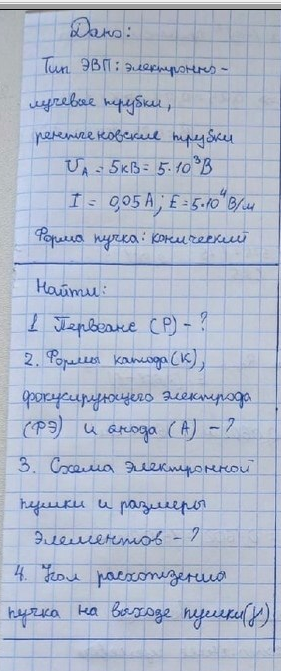 Дано:
Тип ЭВП: электронно-
лучевые трубки,
рентгеновские трубки
U_A = 5кВ = 5·10³В
I = 0,05А; E = 5·10⁴В/м
Форма пучка: конический
Найти:
1 Первеанс (P) - ?
2. Формы катода (К),
фокусирующего электрода
(ФЭ) и анода (А) - ?
3. Схема электронной
пушки и размеры
элементов - ?
4. Угол расхождения
пучка на выходе пушки(γ)